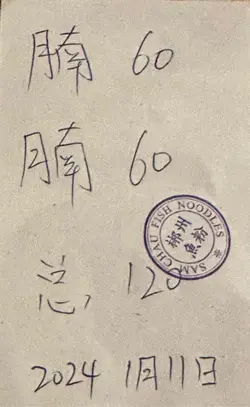 腩 60
腩 60
总 120
SAM CHAU FISH NOODLES
郴州
魚粉
2024 1月11日